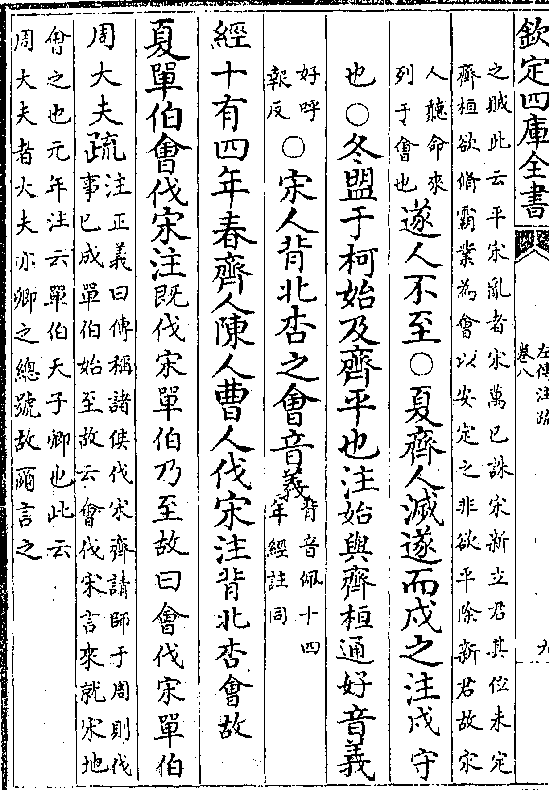 欽定四庫全書
左傳注疏
卷八
九
之賊此云平宋亂者宋萬已誅宋新立君其位未定
齊桓欲脩霸業為會以安定之非欲平除新君故宋
人聽命來
列于會也
遂人不至○夏齊人滅遂而戍之注戍守
也○冬盟于柯始及齊平也注始與齊桓通好音義
好呼
報反
○宋人背北杏之會音義
背音佩十四
年經註同
經十有四年春齊人陳人曹人伐宋注背北杏會故
夏單伯會伐宋注既伐宋單伯乃至故曰會伐宋單伯
周大夫疏
注正義曰傳稱諸侯伐宋齊請師于周則伐
事已成單伯始至故云會伐宋言來就宋地
會之也元年注云單伯天子卿也此云
周大夫者大夫亦卿之總號故爾言之